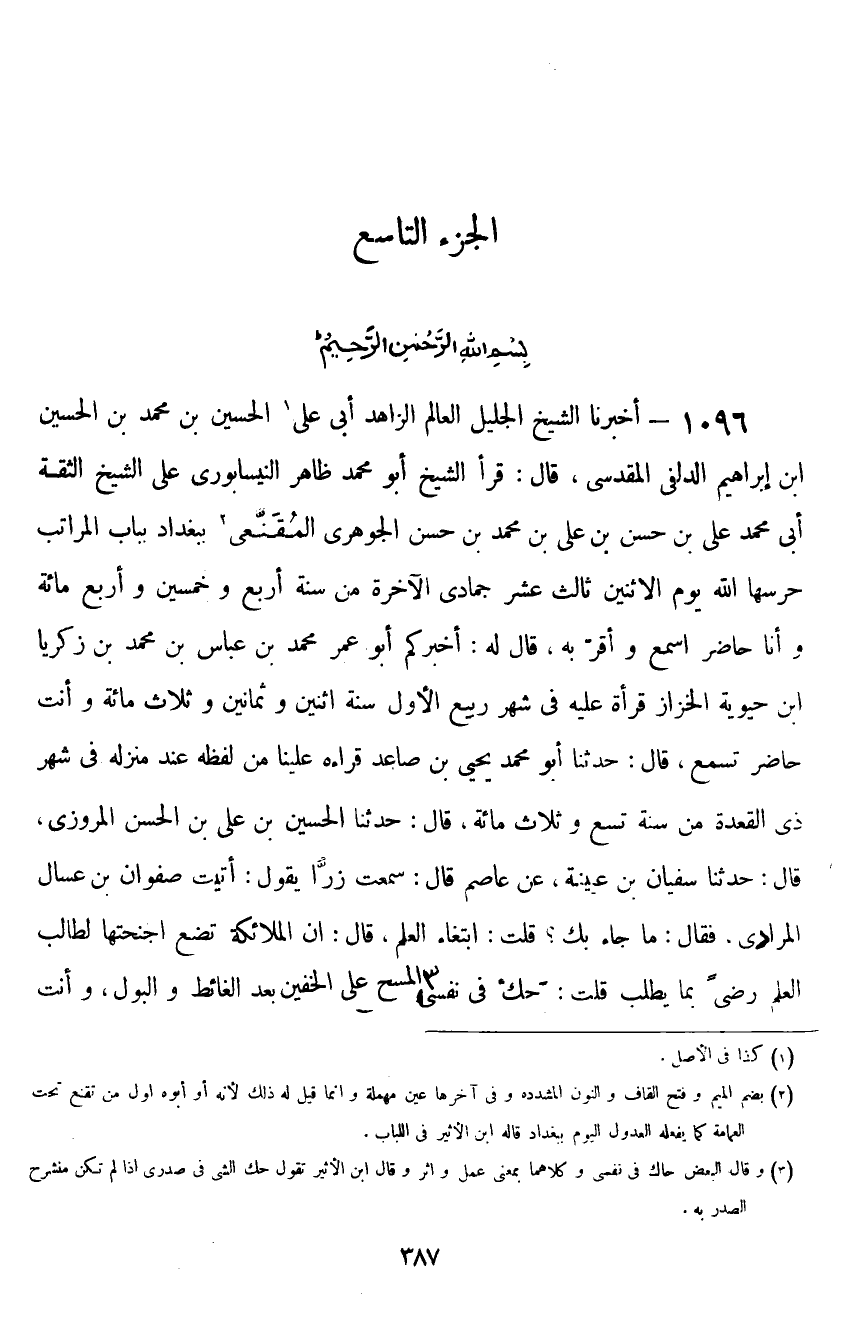 الجزء التاسع
بِسْمِ اللهِ الرَّحْمٰنِ الرَّحِيْمِ
١٠٩٦ – أخبرنا الشيخ الجليل العالم الزاهد أبى على١ الحسين بن محمد بن الحسين
ابن إبراهيم الدلفى المقدسى ، قال : قرأ الشيخ أبو محمد ظاهر النيسابورى على الشيخ الثقة
أبى محمد على بن حسن بن على بن محمد بن حسن الجوهرى المُقَنَّعى٢ ببغداد بباب المراتب
حرسها الله يوم الاثنين ثالث عشر جمادى الآخرة من سنة أربع و خمسين و أربع مائة
و أنا حاضر اسمع و أقرّ به ، قال له : أخبركم أبو عمر محمد بن عباس بن محمد بن زكريا
ابن حيوية الخزاز قرأة عليه فى شهر ربيع الأول سنة اثنين و ثمانين و ثلاث مائة و أنت
حاضر تسمع ، قال : حدثنا أبو محمد يحيى بن صاعد قراءه علينا من لفظه عند منزله فى شهر
ذى القعدة من سنة تسع و ثلاث مائة ، قال : حدثنا الحسين بن على بن الحسن المروزى ،
قال : حدثنا سفيان بن عيينة ، عن عاصم قال : سمعت زرًّا يقول : أتيت صفوان بن عسال
المرادى . فقال : ما جاء بك ؟ قلت : ابتغاء العلم ، قال : ان الملائكة تضع اجنحتها لطالب
العلم رضىً بما يطلب قلت : حك فى نفسى٣ المسح على الخفين بعد الغائط و البول ، و أنت
(١) كذا فى الأصل .
(٢) بضم الميم و فتح القاف و النون المشدده و فى آخرها عين مهملة و انما قيل له ذلك لأنه أو أبوه اول من تقنع تحت
العمامة كما يفعله العدول اليوم ببغداد قاله ابن الأثير فى اللباب .
(٣) و قال البعض حاك فى نفسى و كلاهما بمعنى عمل و اثر و قال ابن الأثير تقول حك الشى فى صدرى اذا لم تكن منشرح
الصدر به .
٣٨٧